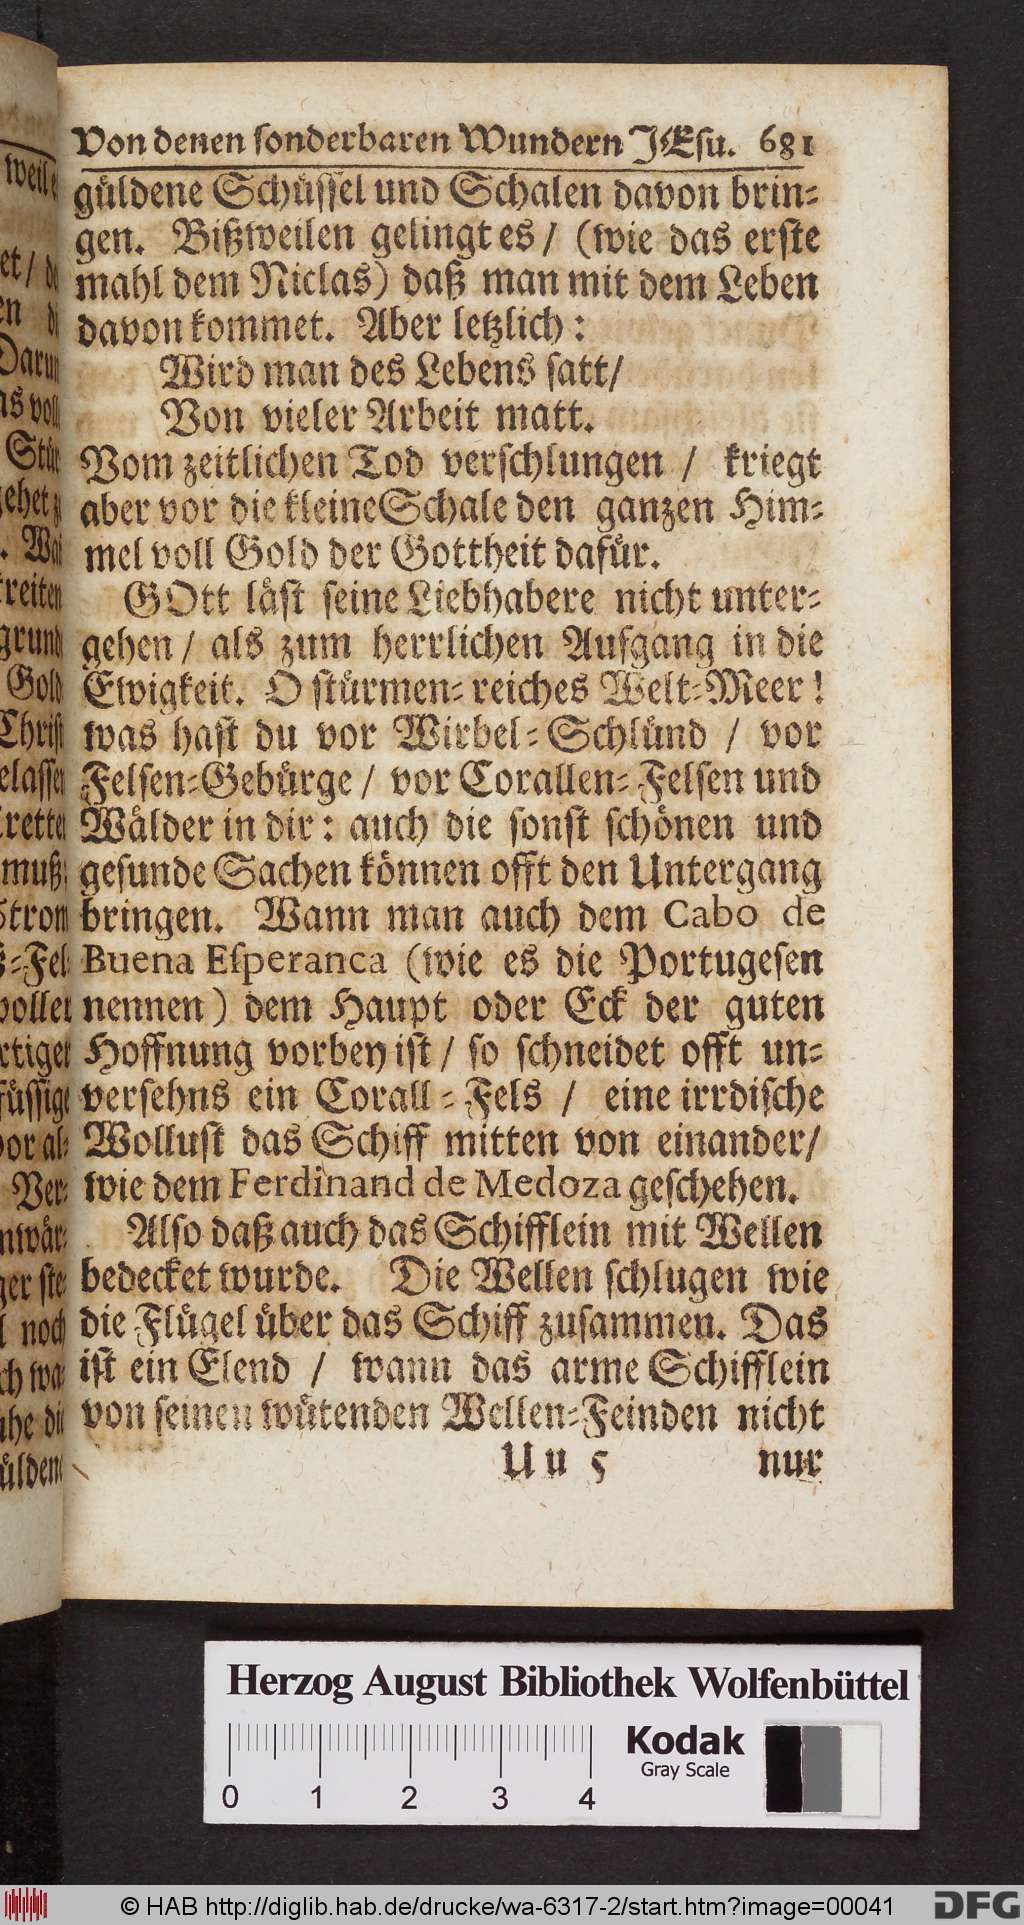 Von denen ſonderbaren Wundern JEſu. 681
güldene Schüſſel und Schalen davon brin-
gen. Bißweilen gelingt es / (wie das erſte
mahl dem Niclas) daß man mit dem Leben
davon kommet. Aber letzlich:
Wird man des Lebens ſatt/
Von vieler Arbeit matt.
Vom zeitlichen Tod verſchlungen / kriegt
aber vor die kleine Schale den ganzen Him-
mel voll Gold der Gottheit dafür.
GOtt läſt ſeine Liebhabere nicht unter-
gehen / als zum herrlichen Aufgang in die
Ewigkeit. O ſtürmen-reiches Welt-Meer!
was haſt du vor Wirbel-Schlünd / vor
Felſen-Gebürge / vor Corallen-Felſen und
Wälder in dir: auch die ſonſt ſchönen und
geſunde Sachen können offt den Untergang
bringen. Wann man auch dem Cabo de
Buena Eſperanca (wie es die Portugeſen
nennen) dem Haupt oder Eck der guten
Hoffnung vorbey iſt / ſo ſchneidet offt un-
verſehns ein Corall-Fels / eine irrdiſche
Wolluſt das Schiff mitten von einander/
wie dem Ferdinand de Medoza geſchehen.
Alſo daß auch das Schifflein mit Wellen
bedecket wurde. Die Wellen ſchlugen wie
die Flügel über das Schiff zuſammen. Das
iſt ein Elend / wann das arme Schifflein
von ſeinen wütenden Wellen-Feinden nicht
Uu 5 nur
Herzog August Bibliothek Wolfenbüttel
Kodak
Gray Scale
0 1 2 3 4
© HAB http://diglib.hab.de/drucke/wa-6317-2/start.htm?image=00041
DFG